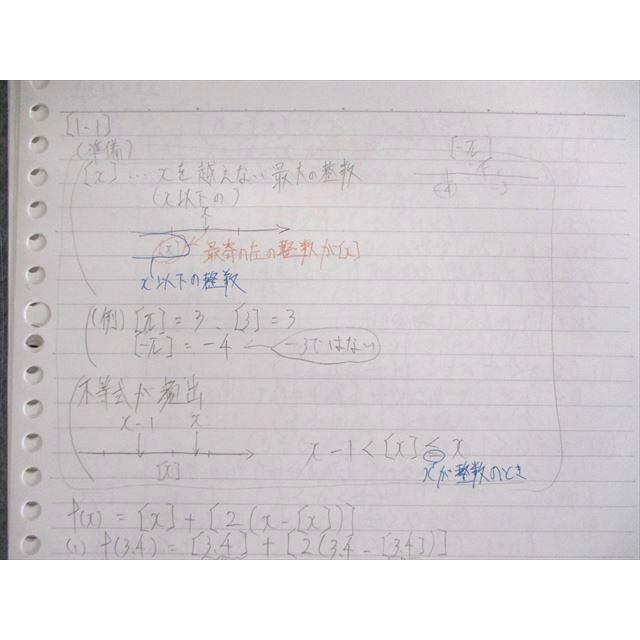 [1-1]
(準備)
[x] … xを越えない最大の整数
(x以下の)
x
[x] 最寄の左の整数が[x]
x以下の整数
[-π]
-4 -3
(例) [π] = 3、[3] = 3
[-π] = -4 ← -3ではない
不等式が頻出
x-1 x
[x]
x-1 < [x] ≦ x
xが整数のとき
f(x) = [x] + [2(x-[x])]
(1) f(3.4) = [3.4] + [2(3.4-[3.4])]